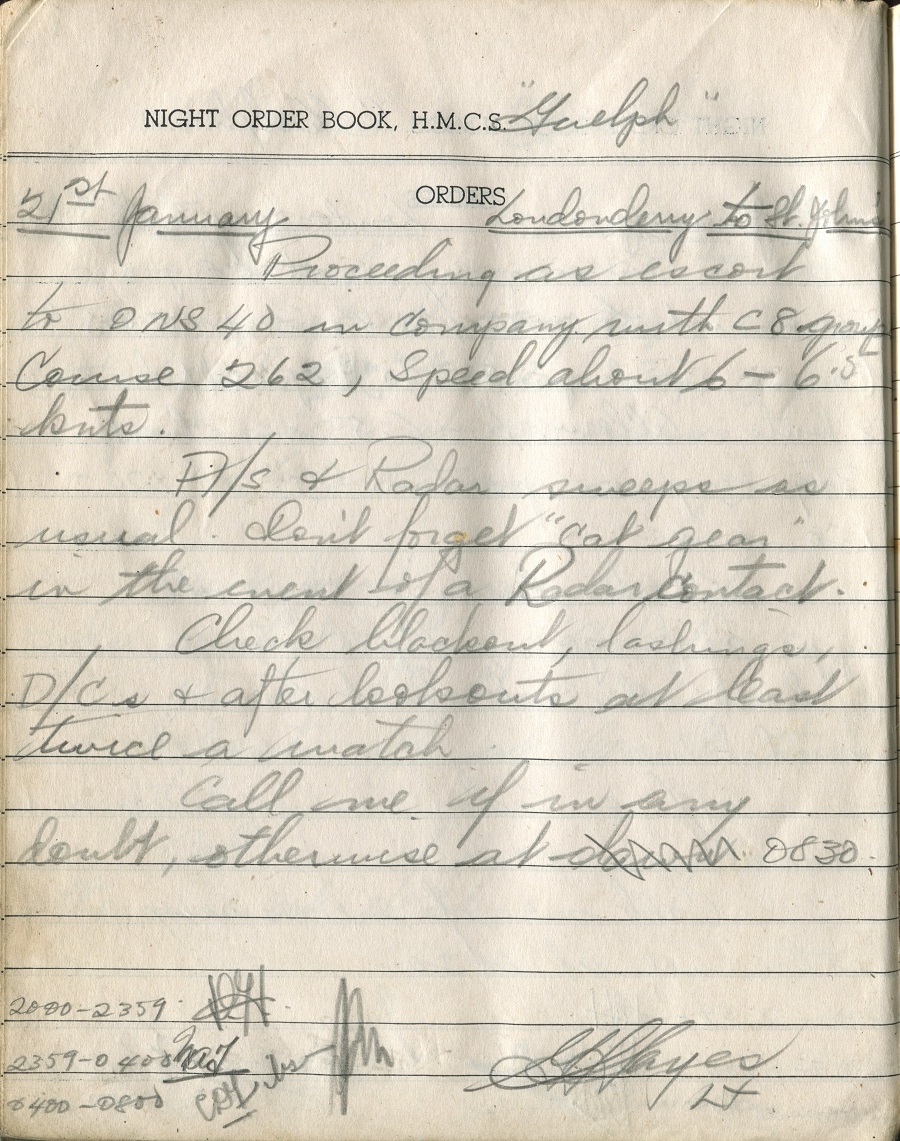 NIGHT ORDER BOOK, H.M.C.S. "Guelph"
ORDERS
21st January Londonderry to St. John's
Proceeding as escort
to ONS 40 in company with C8 group
Course 262, Speed about 6 – 6.5
knts.
A/s & Radar sweeps as
usual. Don't forget "cat gear"
in the event of a Radar contact.
Check blackout, lashings,
D/Cs & after lookouts at least
twice a watch.
Call me if in any
doubt, otherwise at dawn 0830.
2000-2359
2359-0400
0400-0800
Hayes
Lt